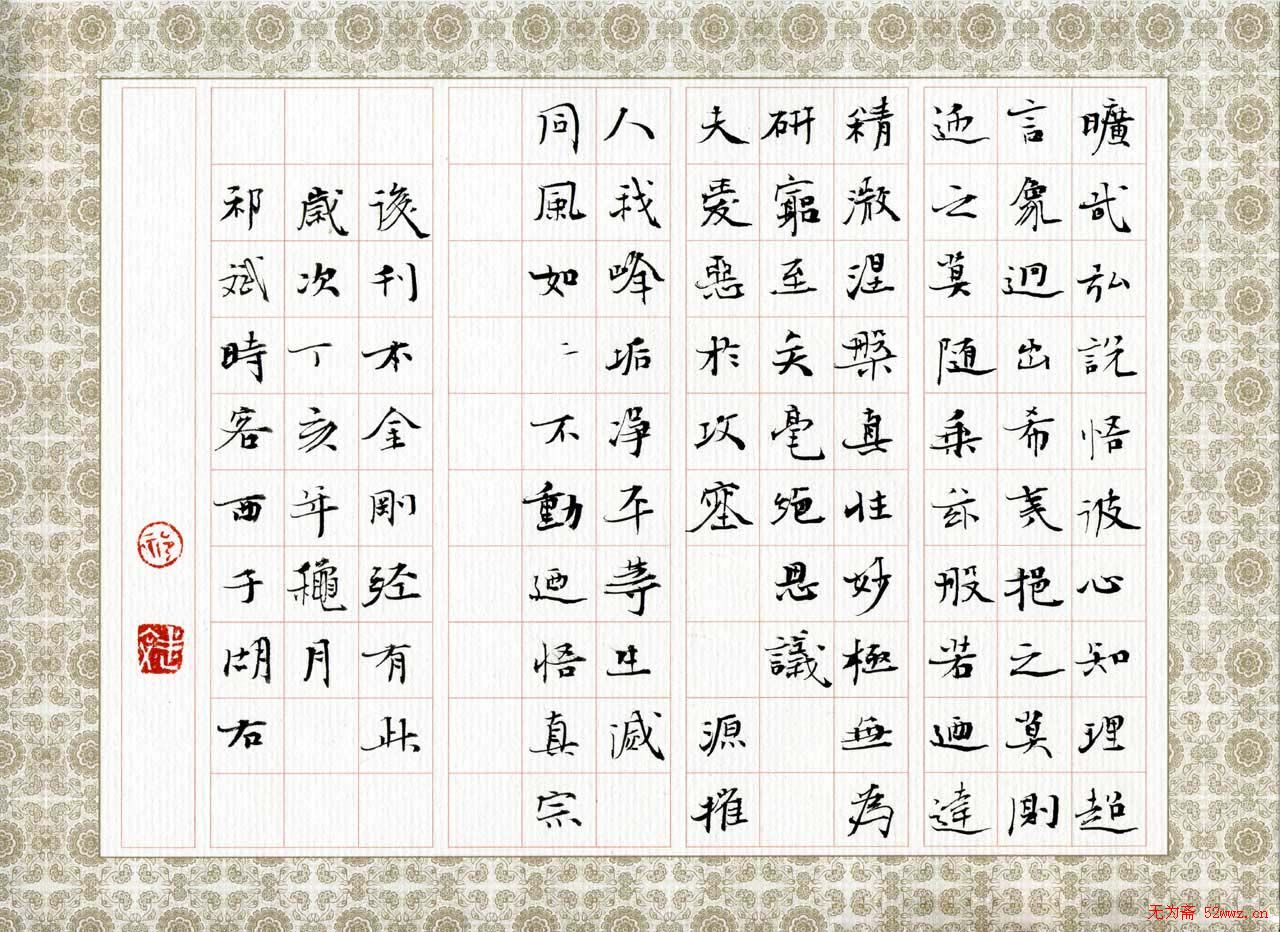 曠哉弘說悟彼心知理超
言象迥出希夷挹之莫測
迎之莫随乘茲般若迺達
精微涅槃真性妙極無為
研窮至矣毫絕思議
夫愛惡於攻塞 源摧
人我峰垢淨平等生滅
同風如〻不動迺悟真宗
後刊本金剛经有此
歲次丁亥年龝月
祁斌時客西子湖右
无为斋 52wwz.cn